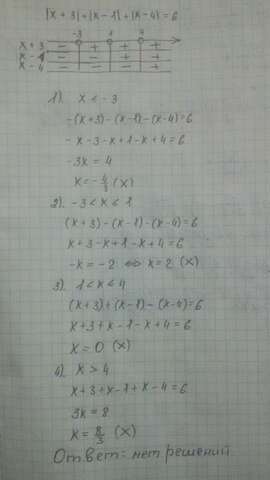 |x + 3| + |x - 1| + |x - 4| = 6
-3 1 4
x + 3 - + + +
x - 1 - - + +
x - 4 - - - +
1). x < -3
-(x+3)-(x-1)-(x-4)=6
-x-3-x+1-x+4=6
-3x = 4
x = -4/3 (x)
2). -3 < x ≤ 1
(x+3)-(x-1)-(x-4)=6
x+3-x+1-x+4=6
-x = -2 ⇔ x = 2 (x)
3). 1 < x ≤ 4
(x+3)+(x-1)-(x-4)=6
x+3+x-1-x+4=6
x = 0 (x)
4). x > 4
x+3+x-1+x-4=6
3x = 8
x = 8/3 (x)
Ответ: нет решений